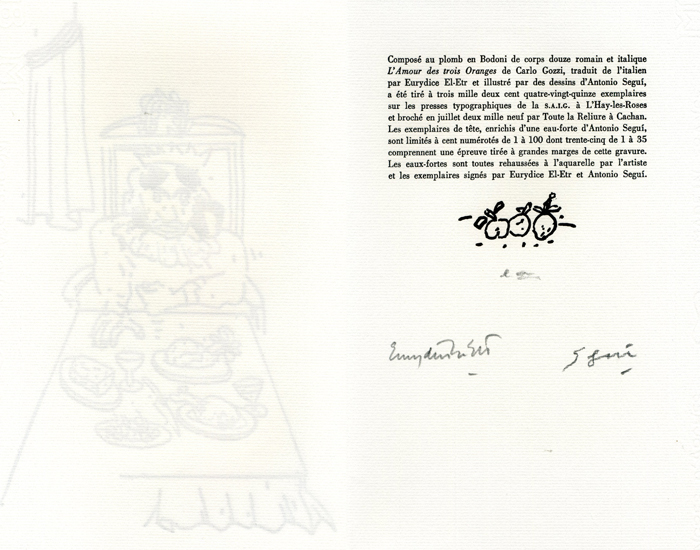 Composé au plomb en Bodoni de corps douze romain et italique
L'Amour des trois Oranges de Carlo Gozzi, traduit de l'italien
par Eurydice El-Etr et illustré par des dessins d'Antonio Seguí,
a été tiré à trois mille deux cent quatre-vingt-quinze exemplaires
sur les presses typographiques de la S.A.I.G. à L'Hay-les-Roses
et broché en juillet deux mille neuf par Toute la Reliure à Cachan.
Les exemplaires de tête, enrichis d'une eau-forte d'Antonio Seguí,
sont limités à cent numérotés de 1 à 100 dont trente-cinq de 1 à 35
comprennent une épreuve tirée à grandes marges de cette gravure.
Les eaux-fortes sont toutes rehaussées à l'aquarelle par l'artiste
et les exemplaires signés par Eurydice El-Etr et Antonio Seguí.